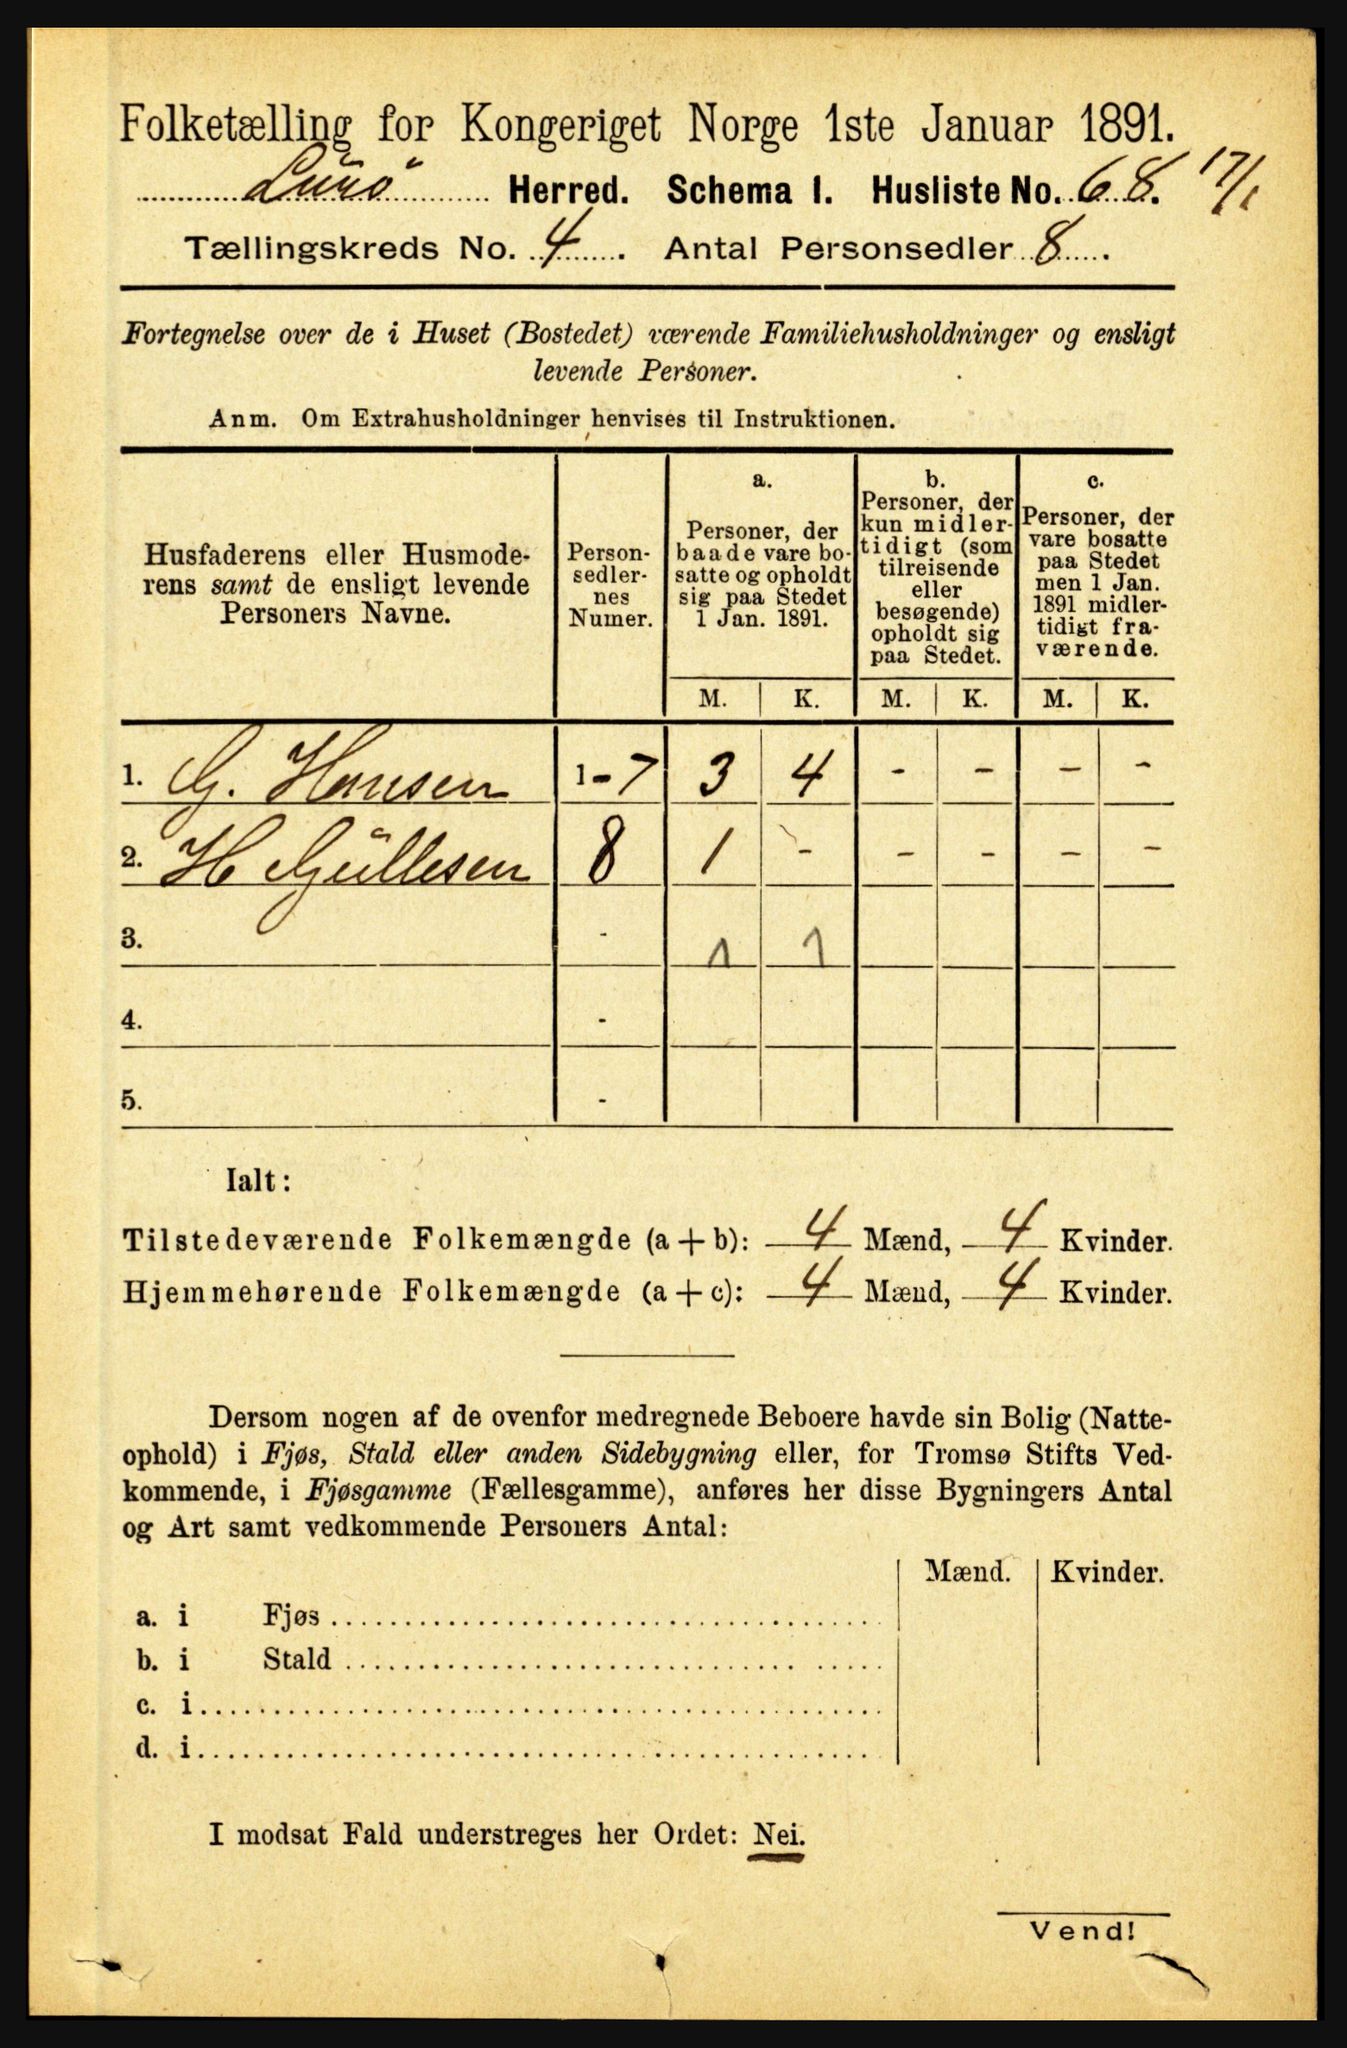 Folketælling for Kongeriget Norge 1ste Januar 1891.
Lurø Herred. Schema I. Husliste No. 68. 17/1
Tællingskreds No. 4. Antal Personsedler 8.
Fortegnelse over de i Huset (Bostedet) værende Familiehusholdninger og ensligt
levende Personer.
Anm. Om Extrahusholdninger henvises til Instruktionen.
Husfaderens eller Husmode-
rens samt de ensligt levende
Personers Navne.
Person-
sedler-
nes
Numer.
a.
Personer, der
baade vare bo-
satte og opholdt
sig paa Stedet
1 Jan. 1891.
b.
Personer, der
kun midler-
tidigt (som
tilreisende
eller
besøgende)
opholdt sig
paa Stedet.
c.
Personer, der
vare bosatte
paa Stedet
men 1 Jan.
1891 midler-
tidigt fra-
værende.
M. K. M. K. M. K.
1. G. Hansen 1-7 3 4 - - - -
2. H Güllesen 8 1 - - - - -
3. - 1 1
4. -
5. -
Ialt:
Tilstedeværende Folkemængde (a + b): 4 Mænd, 4 Kvinder.
Hjemmehørende Folkemængde (a + c): 4 Mænd, 4 Kvinder.
Dersom nogen af de ovenfor medregnede Beboere havde sin Bolig (Natte-
ophold) i Fjøs, Stald eller anden Sidebygning eller, for Tromsø Stifts Ved-
kommende, i Fjøsgamme (Fællesgamme), anføres her disse Bygningers Antal
og Art samt vedkommende Personers Antal:
Mænd. Kvinder.
a. i Fjøs
b. i Stald
c. i
d. i
I modsat Fald understreges her Ordet: Nei.
Vend!